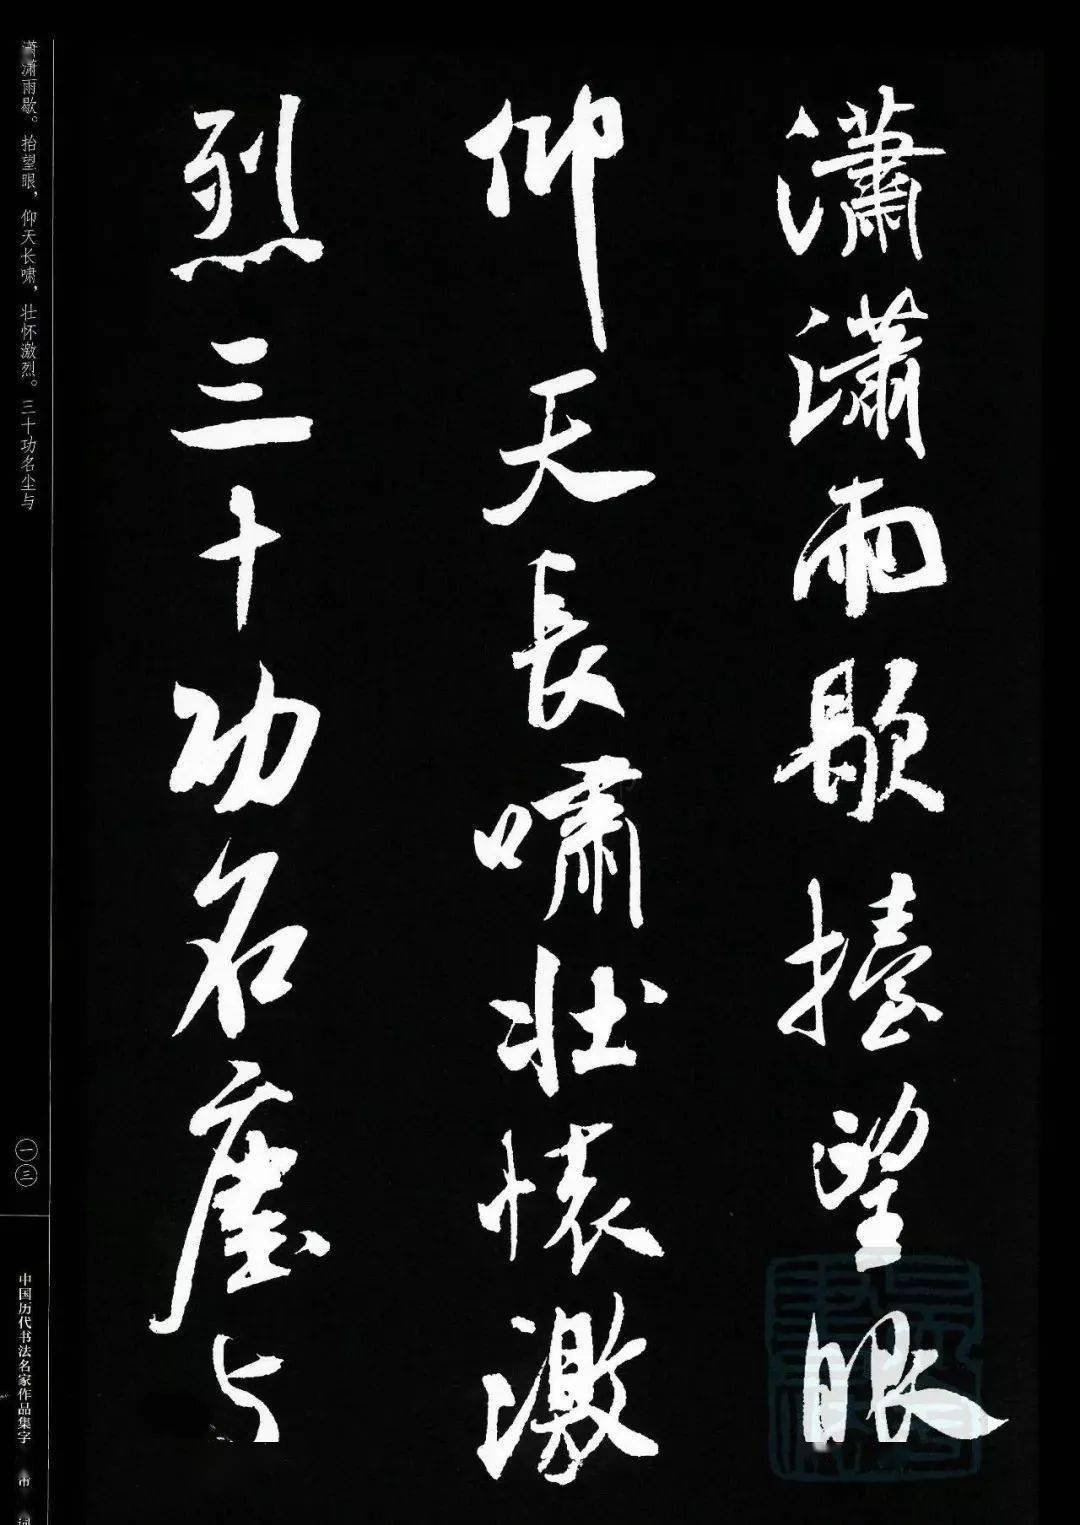 瀟瀟雨歇擡望眼
仰天長嘯壯懷激
烈三十功名塵与
潇潇雨歇。抬望眼，仰天长啸，壮怀激烈。三十功名尘与
一三
中国历代书法名家作品集字
词